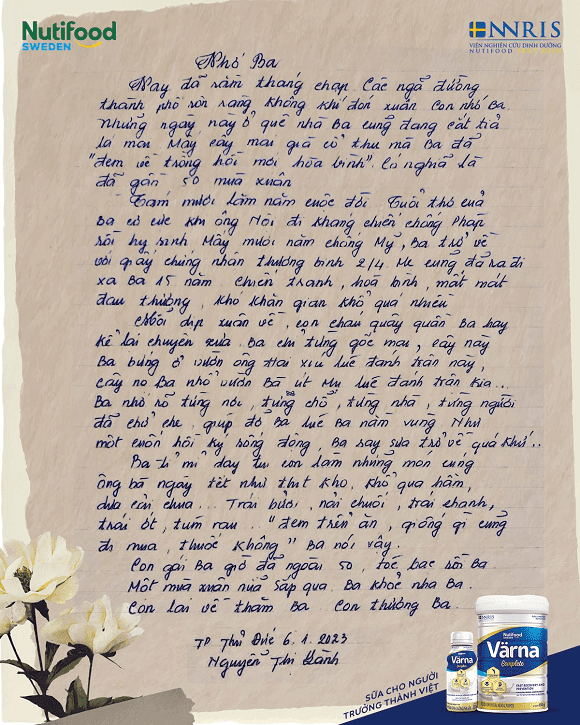 Nutifood
SWEDEN
NNRIS
VIỆN NGHIÊN CỨU DINH DƯỠNG
NUTIFOOD
Nhớ Ba
Nay đã rằm tháng chạp. Các ngã đường
thành phố rộn ràng không khí đón xuân. Con nhớ Ba.
Những ngày này ở quê nhà Ba cũng đang cắt tỉa
lá mai. Mấy cây mai già cổ thụ mà Ba đã
"đem về trồng hồi mới hòa bình". Có nghĩa là
đã gần 50 mùa xuân
Tám mươi lăm năm cuộc đời. Tuổi thơ của
Ba cơ cực khi ông Nội đi kháng chiến chống Pháp
rồi hy sinh. Mấy mươi năm chống Mỹ, Ba trở về
với giấy chứng nhận thương binh 2/4. Mẹ cũng đã ra đi
xa Ba 15 năm. Chiến tranh, hoà bình, mất mát
đau thương, khó khăn gian khổ quá nhiều
Mỗi dịp xuân về, con cháu quây quần Ba hay
kể lại chuyện xưa. Ba chỉ từng gốc mai, cây này
Ba bứng ở vườn ông Hai xỉu lúc đánh trận này,
cây nọ Ba nhổ vườn Bà út Mụ lúc đánh trận kia...
Ba nhớ rõ từng nơi, từng chỗ, từng nhà, từng người
đã chở che, giúp đỡ Ba lúc Ba nằm vùng. Như
một cuốn hồi ký sống động, Ba say sưa trở về quá khứ...
Ba tỉ mỉ dạy tụi con làm những món cúng
ông bà ngày tết như thịt kho, khổ qua hầm,
dưa cải chua... Trái bưởi, nải chuối, trái chanh,
trái ớt, tụm rau... "đem trên ăn, giống gì cũng
đi mua, thuốc không" Ba nói vậy.
Con gái Ba giờ đã ngoài 50, tóc bạc rồi Ba
Một mùa xuân nữa sắp qua. Ba khoẻ nha Ba.
Con lại về thăm Ba. Con thương Ba.
TP Thủ Đức 6.1.2023
Nguyễn Thị Hành
SỮA CHO NGƯỜI
TRƯỞNG THÀNH VIỆT
NNRIS
Nutifood
Värna
Complete
Värna
Complete